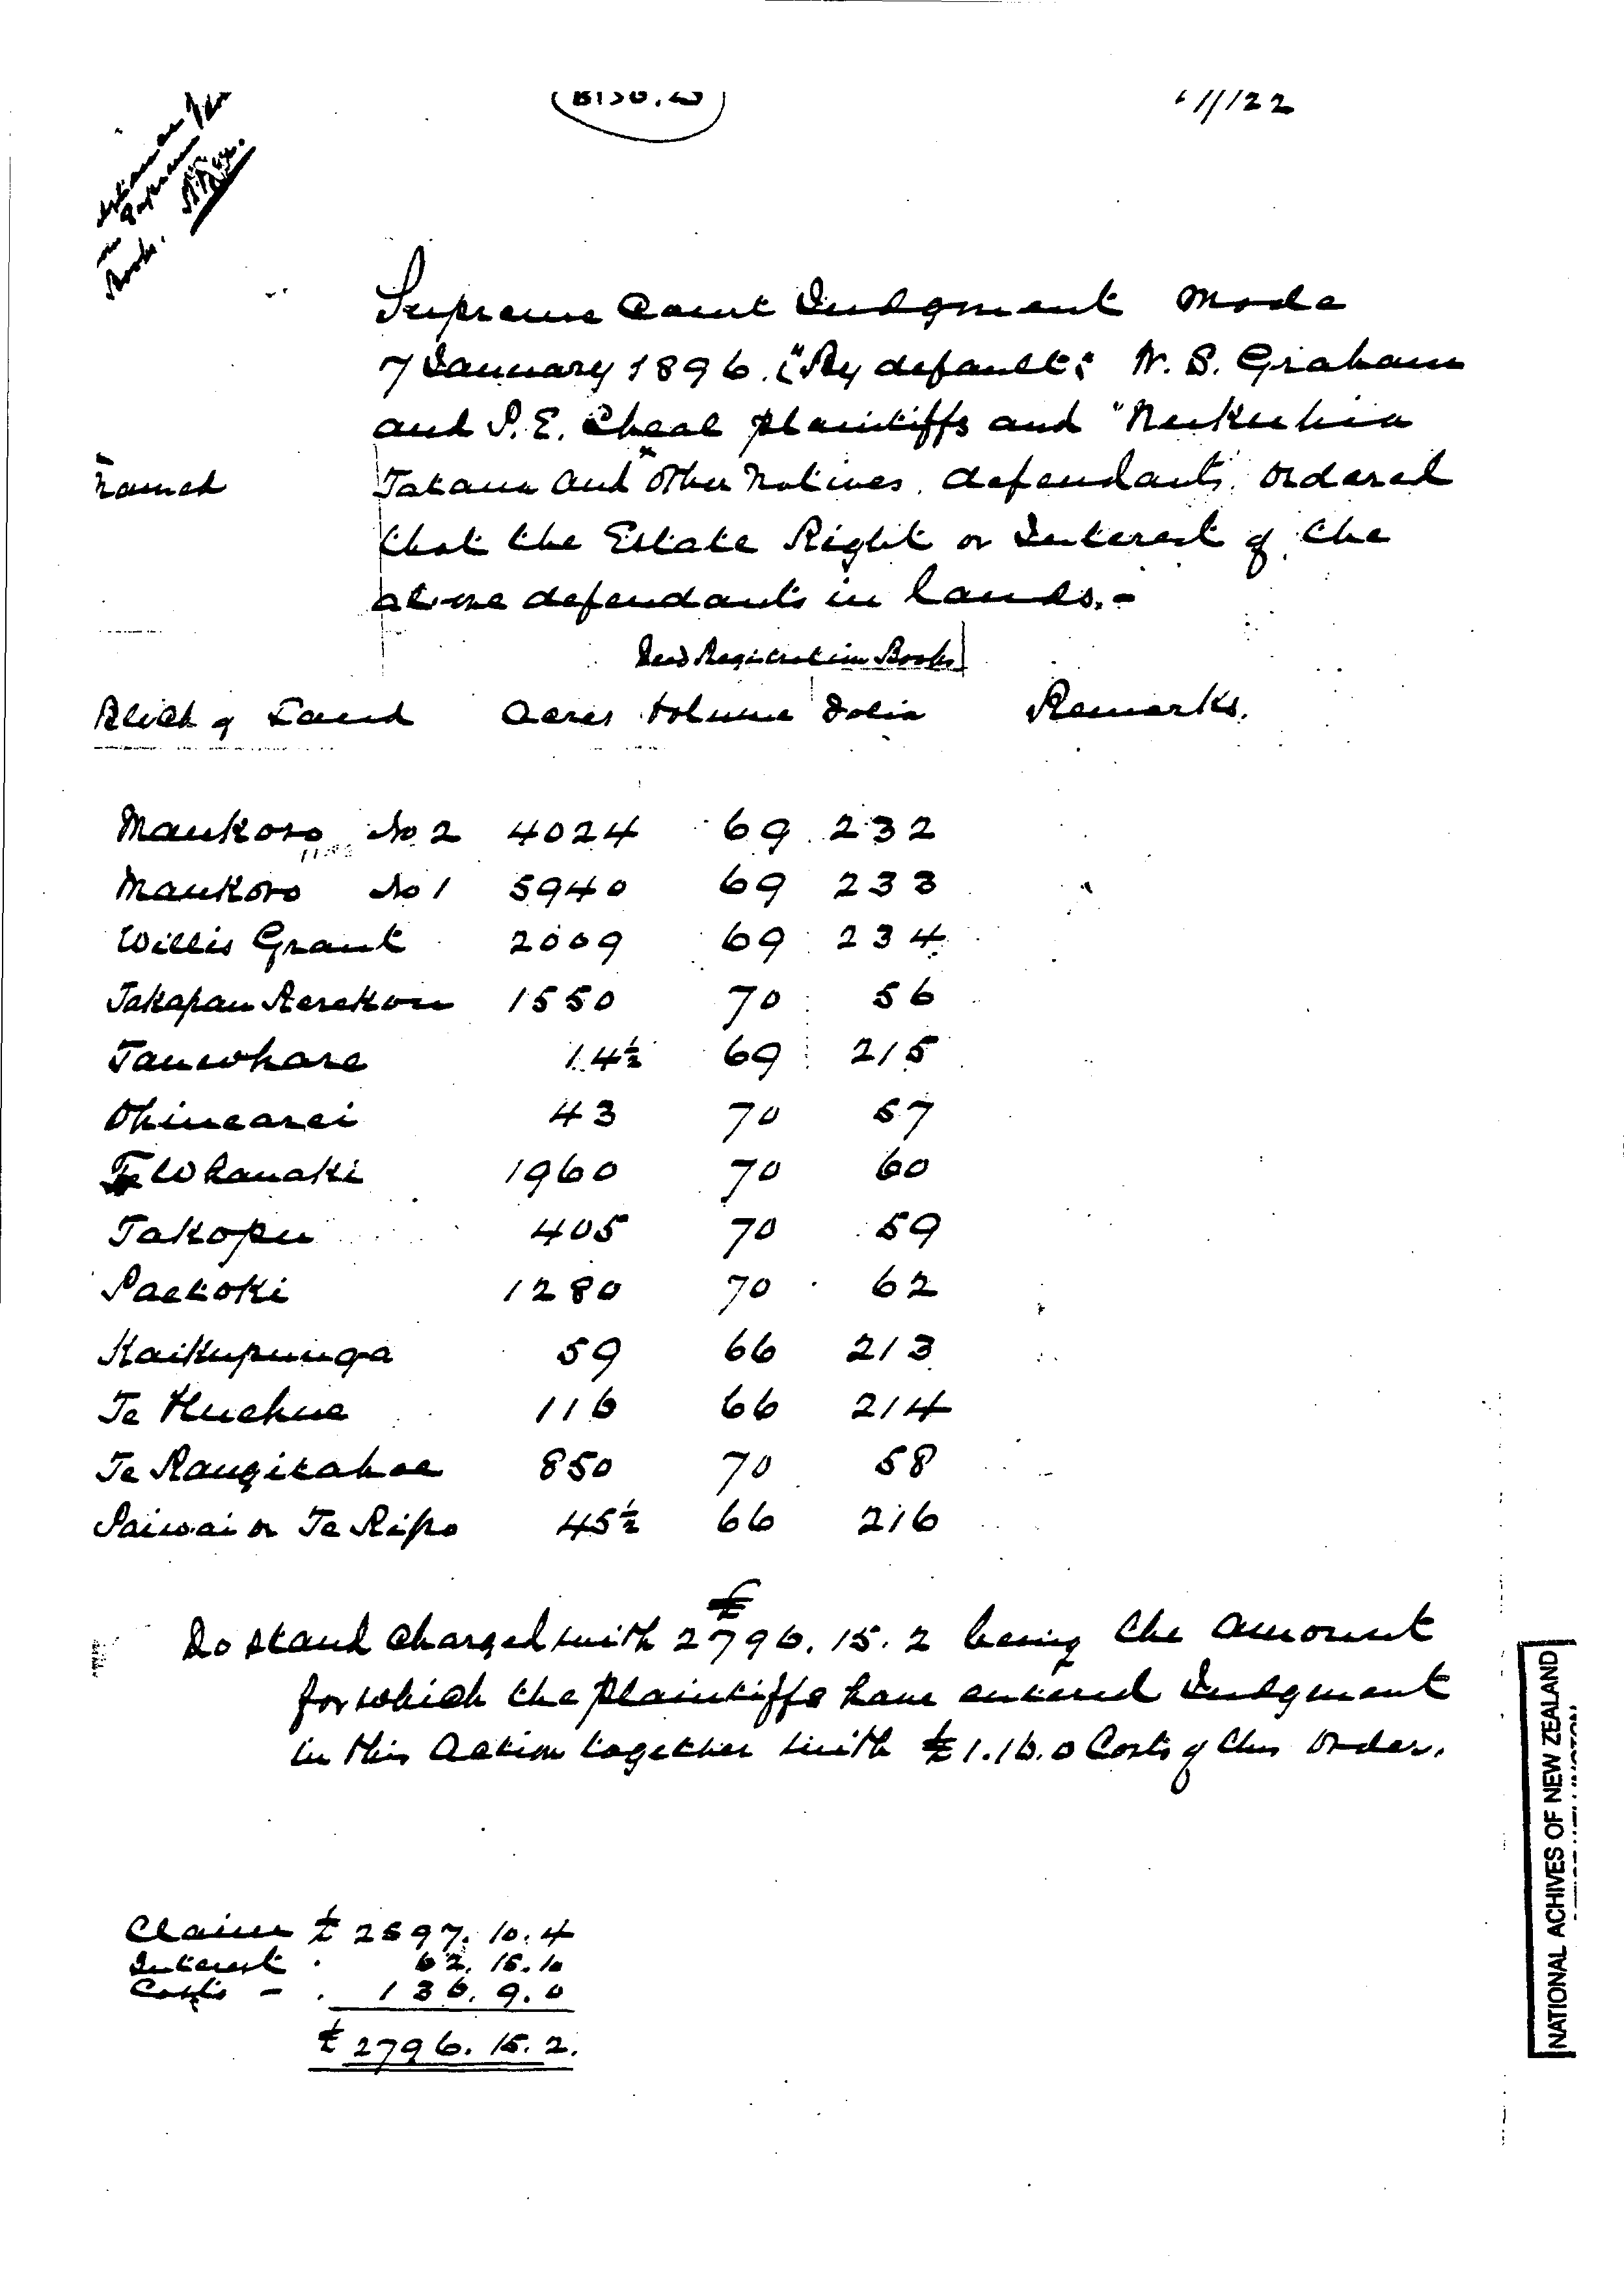 11/122
in
Book.
Supreme Court Judgment made
7 January 1896. "By default" W. S. Graham
and P. E. Cheal plaintiffs and "Neukuhia
named
Takaua and "other Natives, defendants, ordered
that the Estate Right or Interest of the
above defendants in lands.-
Deed Registration Books
Block of Land Acres Volume Folio Remarks.
Maukoro No 2 4024 69 232
Maukoro No 1 5940 69 233
Willis Grant 2009 69 234
Takapau Rerekou 1550 70 56
Tauwhare 14½ 69 215
Ohinearei 43 70 57
Te Whanake 1960 70 60
Takopu 405 70 59
Paetoki 1280 70 62
Kaikupunga 59 66 213
Te Huehue 116 66 214
Te Rangitahae 850 70 58
Paiwai or Te Ripo 45½ 66 216
Do stand charged with £2796.15.2 being the amount
for which the plaintiffs have entered Judgment
in this Action together with £1.16.0 Costs of this order.
Claim £ 2597.10.4
Interest . 62.15.10
Costs - . 136.9.0
£ 2796.15.2.
NATIONAL ACHIVES OF NEW ZEALAND